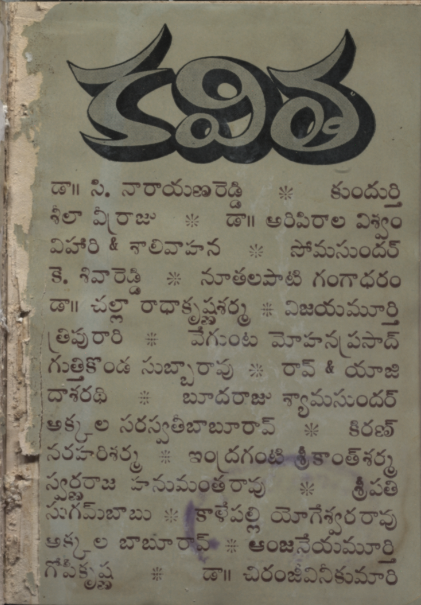 కవిత
డా॥ సి. నారాయణరెడ్డి * కుందుర్తి
శీలా వీర్రాజు * డా॥ అరిపిరాల విశ్వం
విహారి & శాలివాహన * సోమసుందర్
కె. శివారెడ్డి * నూతలపాటి గంగాధరం
డా॥ చల్లా రాధాకృష్ణశర్మ * విజయమూర్తి
త్రిపురారి * వేగుంట మోహనప్రసాద్
గుత్తికొండ సుబ్బారావు * రావ్ & యాజి
దాశరథి * బూదరాజు శ్యామసుందర్
అక్కల సరస్వతీబాబూరావ్ * కిరణ్
నరహరిశర్మ * ఇంద్రగంటి శ్రీకాంత్‌శర్మ
స్వర్ణరాజ హనుమంతరావు * శ్రీపతి
సుగమ్‌బాబు * కాళేపల్లి యోగేశ్వరరావు
అక్కల బాబూరావ్ * ఆంజనేయమూర్తి
గోపీకృష్ణ * డా॥ చిరంజీవినీకుమారి